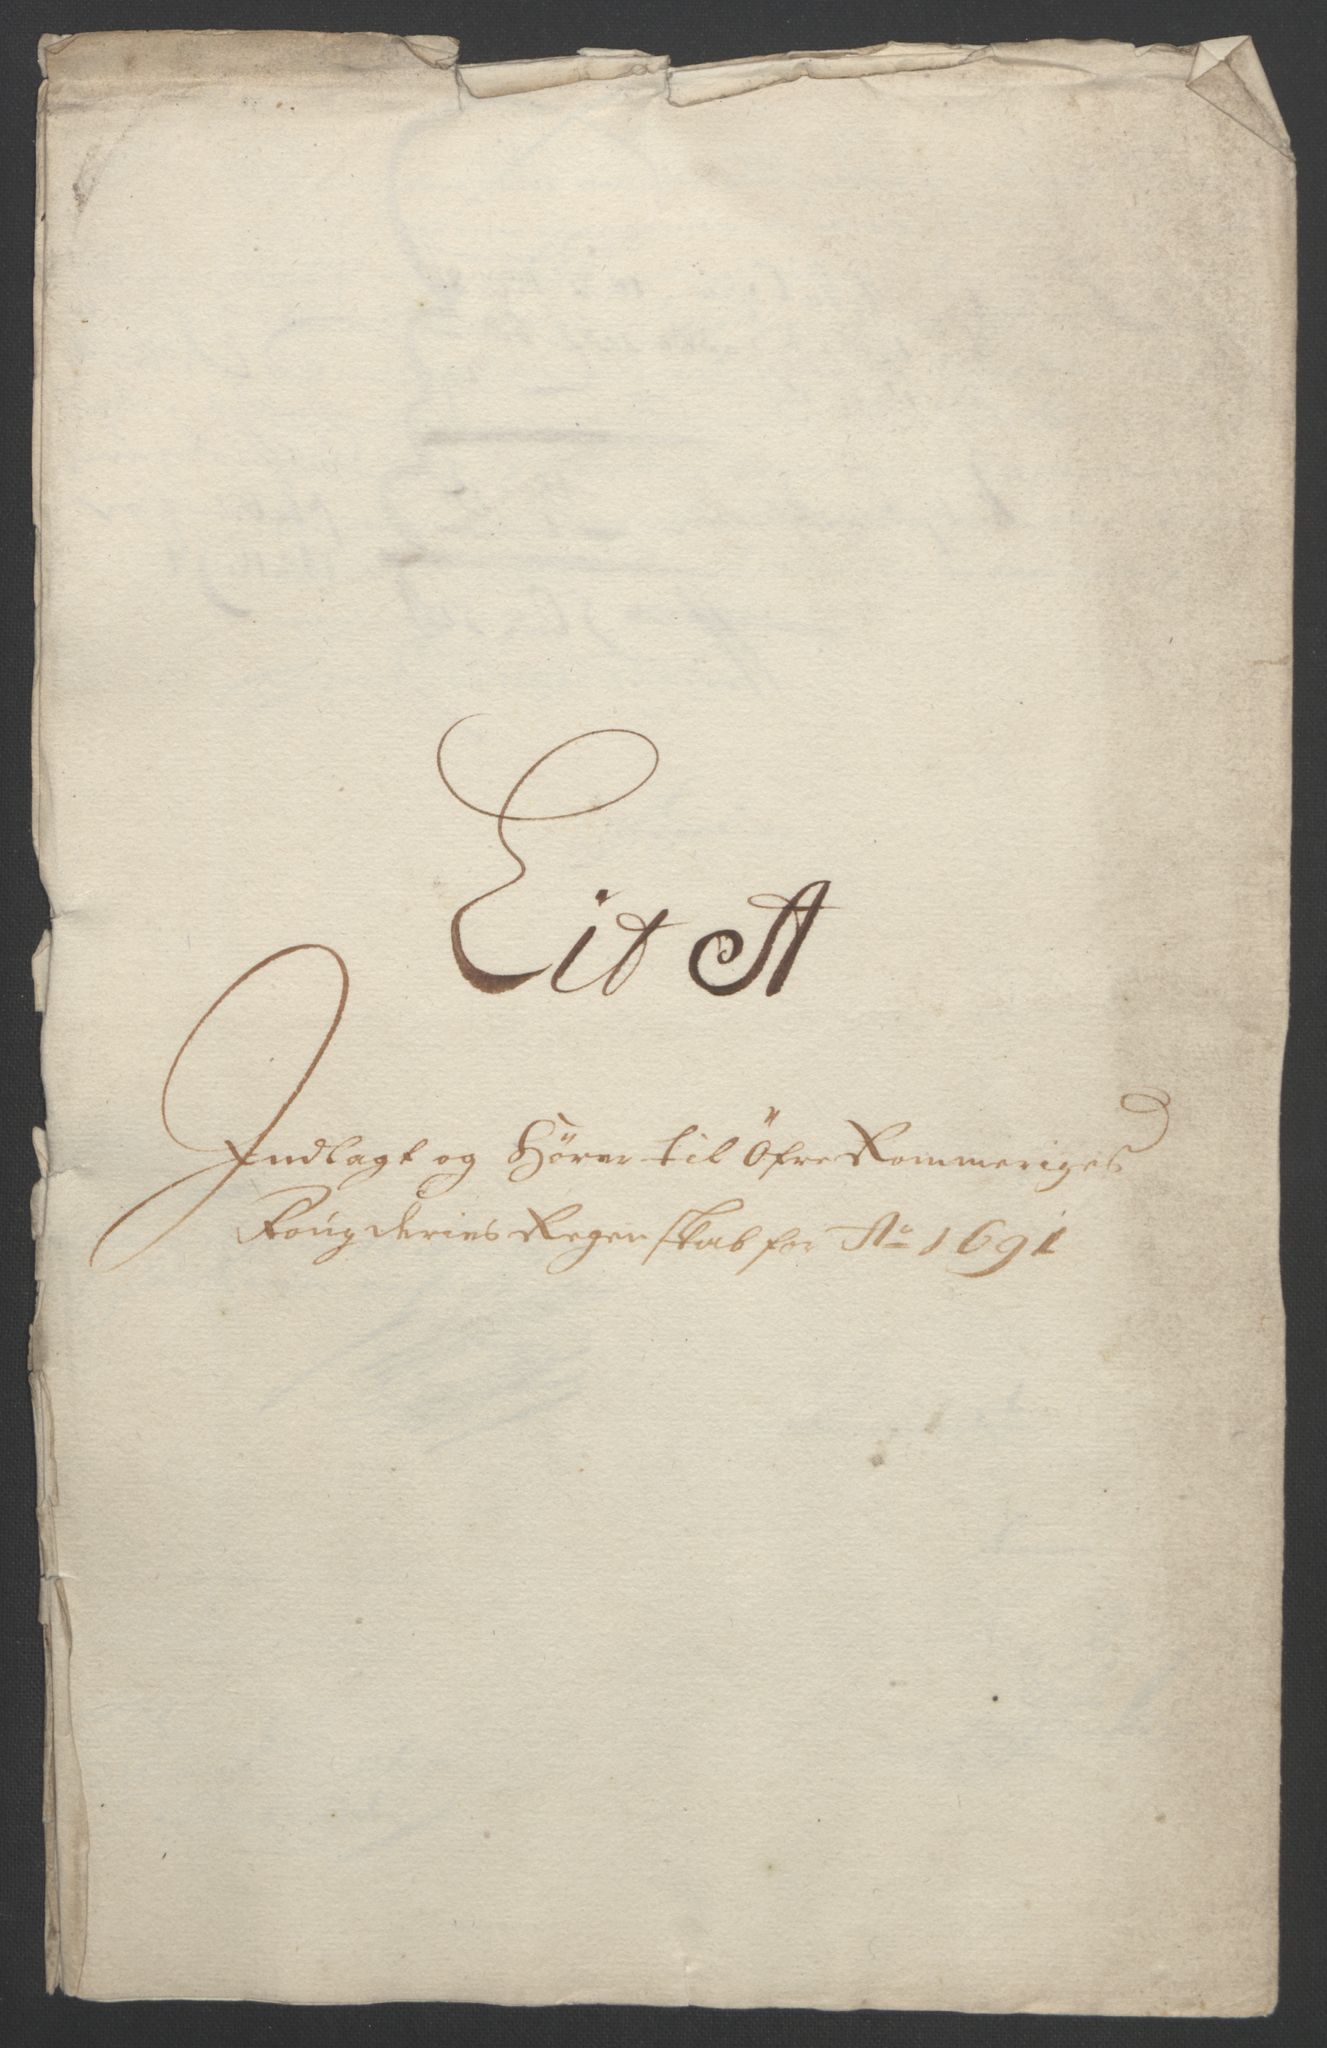 Lit A
Indlagt og Hörer til Öfre Rommeriges
Fougderies Regenskab for Ao 1691